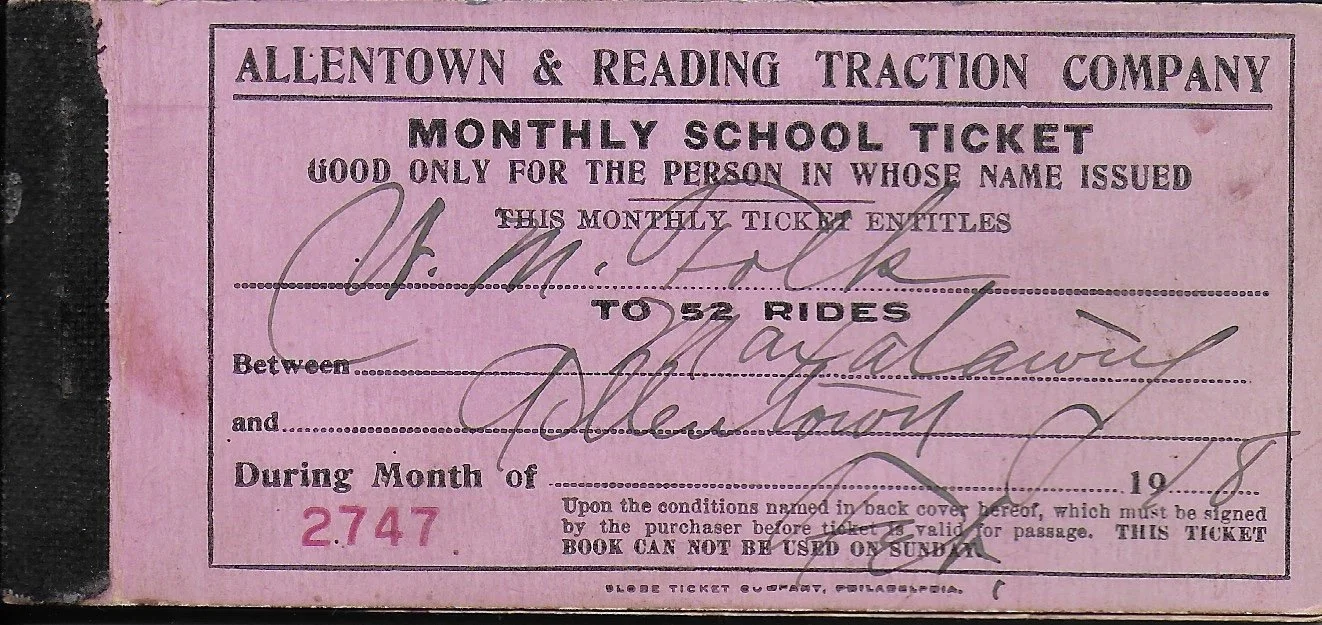 ALLENTOWN & READING TRACTION COMPANY
MONTHLY SCHOOL TICKET
GOOD ONLY FOR THE PERSON IN WHOSE NAME ISSUED
THIS MONTHLY TICKET ENTITLES
M. Folk
TO 52 RIDES
Between Maxatawny
and Allentown
During Month of Feb 1918
2747
Upon the conditions named in back cover hereof, which must be signed
by the purchaser before ticket is valid for passage. THIS TICKET
BOOK CAN NOT BE USED ON SUNDAY.
GLOBE TICKET COMPANY, PHILADELPHIA.